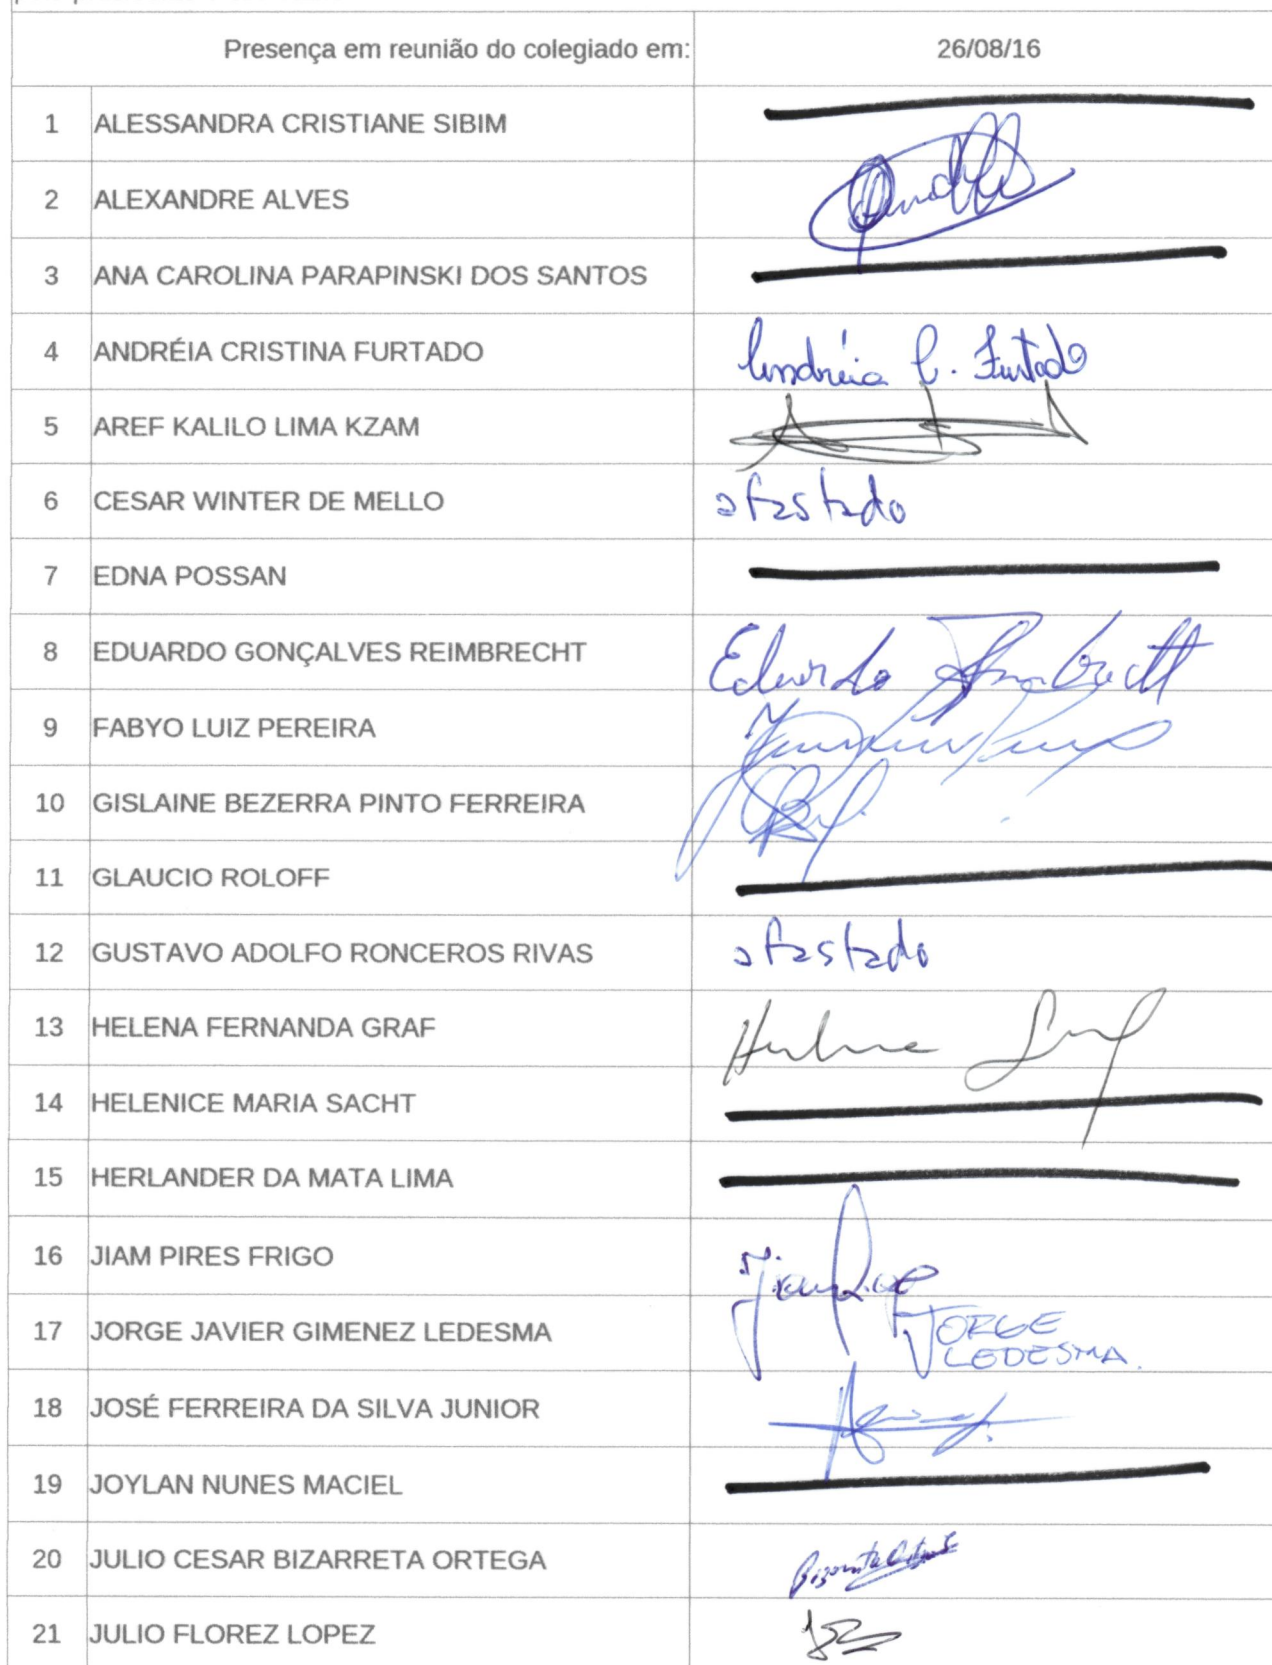 Presença em reunião do colegiado em: 26/08/16
1 ALESSANDRA CRISTIANE SIBIM
2 ALEXANDRE ALVES
3 ANA CAROLINA PARAPINSKI DOS SANTOS
4 ANDRÉIA CRISTINA FURTADO Andréia C. Furtado
5 AREF KALILO LIMA KZAM
6 CESAR WINTER DE MELLO afastado
7 EDNA POSSAN
8 EDUARDO GONÇALVES REIMBRECHT Eduardo Reimbrecht
9 FABYO LUIZ PEREIRA
10 GISLAINE BEZERRA PINTO FERREIRA
11 GLAUCIO ROLOFF
12 GUSTAVO ADOLFO RONCEROS RIVAS afastado
13 HELENA FERNANDA GRAF Helena Graf
14 HELENICE MARIA SACHT
15 HERLANDER DA MATA LIMA
16 JIAM PIRES FRIGO
17 JORGE JAVIER GIMENEZ LEDESMA JORGE
LEDESMA.
18 JOSÉ FERREIRA DA SILVA JUNIOR
19 JOYLAN NUNES MACIEL
20 JULIO CESAR BIZARRETA ORTEGA
21 JULIO FLOREZ LOPEZ